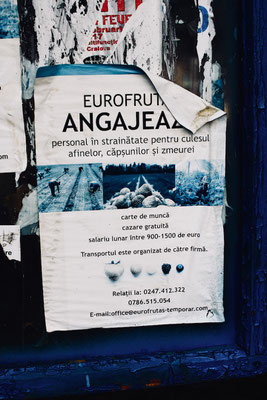 FEU
februar
17
Multifuncțir
Craiova
EUROFRUTA
ANGAJEAZ
personal în strainătate pentru culesul
afinelor, căpșunilor și zmeurei
carte de muncă
cazare gratuită
salariu lunar între 900-1500 de euro
Transportul este organizat de către firmă.
Relații la: 0247.412.322
0786.515.054
E-mail:office@eurofrutas-temporar.com
om